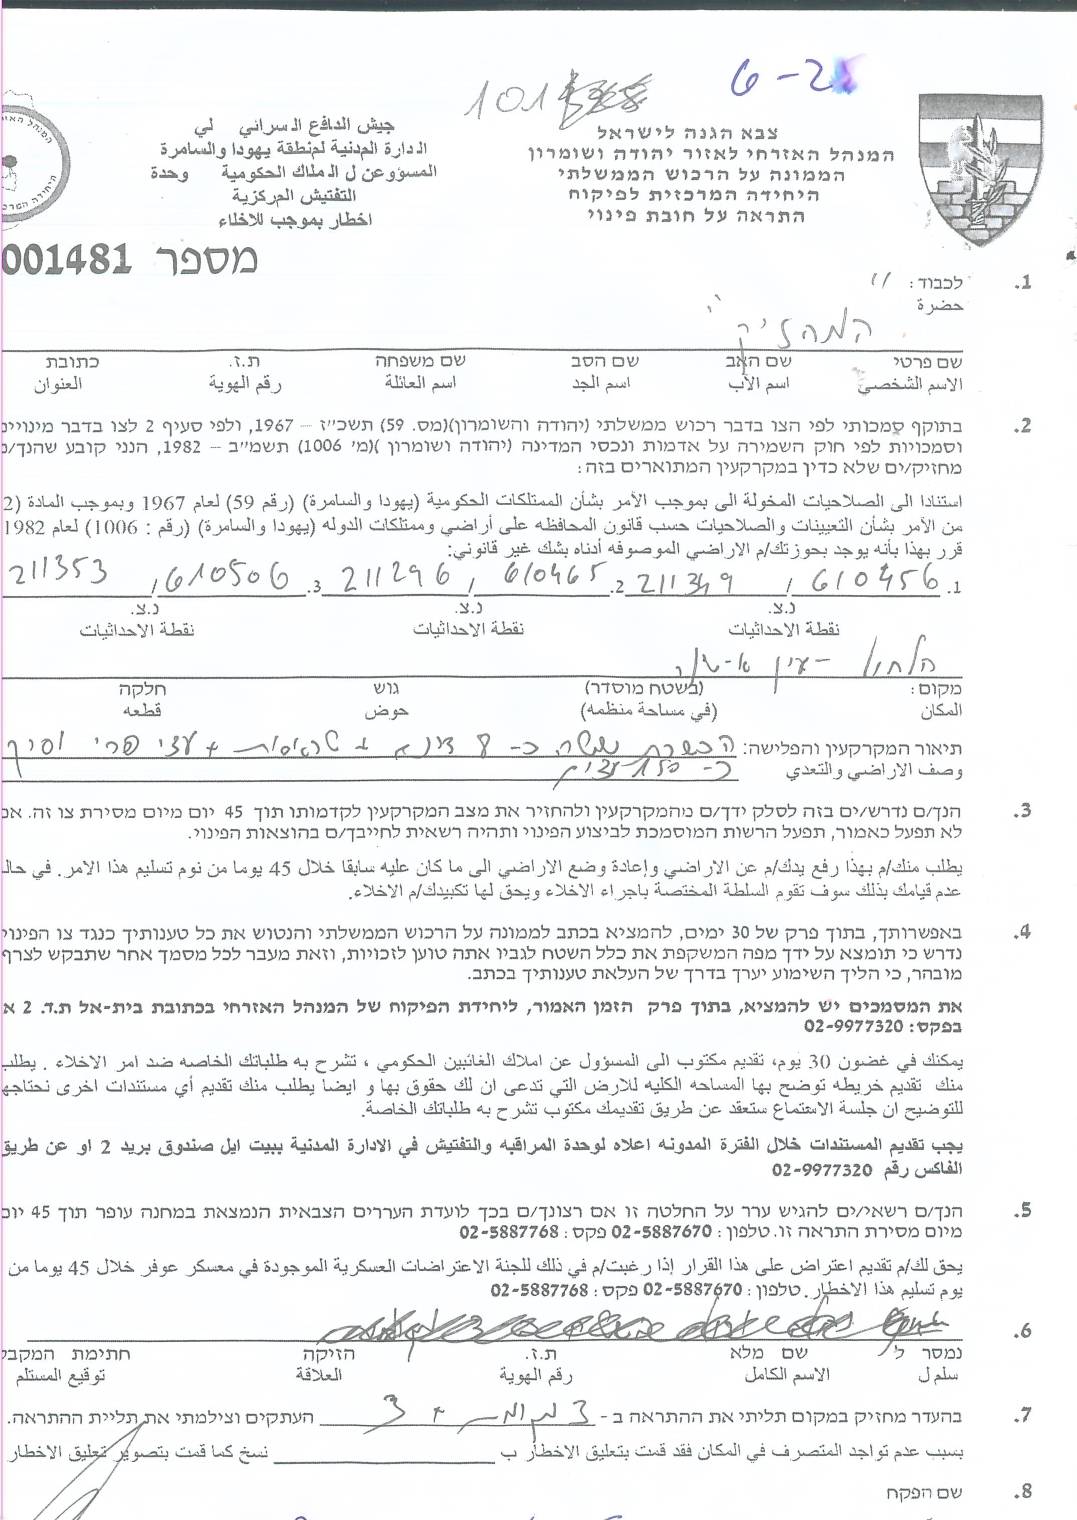 6-2
101
צבא הגנה לישראל
המנהל האזרחי לאזור יהודה ושומרון
הממונה על הרכוש הממשלתי
היחידה המרכזית לפיקוח
התראה על חובת פינוי
جيش الدافع الـسرائي لي
الـدارة المدنية لمنطقة يهودا والسامرة
المسؤوعن ل الـملاك الحكومية وحدة
التفتيش المركزية
اخطار بموجب للاخلاء
מספר 001481
1. לכבוד:
חضרة
המחזיק
שם פרטי שם האב שם הסב שם משפחה ת.ז. כתובת
الاسم الشخصي اسم الأب اسم الجد اسم العائلة رقم الهوية العنوان
2. בתוקף סמכותי לפי הצו בדבר רכוש ממשלתי (יהודה והשומרון)(מס. 59) תשכ״ז – 1967, ולפי סעיף 2 לצו בדבר מינויים
וסמכויות לפי חוק השמירה על אדמות ונכסי המדינה (יהודה ושומרון )(מ' 1006) תשמ״ב – 1982, הנני קובע שהנך/ם
מחזיק/ים שלא כדין במקרקעין המתוארים בזה:
استنادا الى الصلاحيات المخولة الى بموجب الأمر بشأن الممتلكات الحكومية (يهودا والسامرة) (رقم 59) لعام 1967 وبموجب المادة (2
من الأمر بشأن التعيينات والصلاحيات حسب قانون المحافظه على أراضي وممتلكات الدوله (يهودا والسامرة) (رقم : 1006) لعام 1982
قرر بهذا بأنه يوجد بحوزتك/م الاراضي الموصوفه أدناه بشك غير قانوني:
1. 610456 / 211349 2. 610465 / 211296 3. 610506 / 211353
נ.צ. נ.צ. נ.צ.
نقطة الاحداثيات نقطة الاحداثيات نقطة الاحداثيات
חלחול - עין א-
מקום: (בשטח מוסדר) גוש חלקה
المكان (في مساحة منظمه) حوض قطعه
תיאור המקרקעין והפלישה: הכשרת שטח כ- 8 דונם + טראסות + עצי פרי
وصف الاراضي والتعدي כ- עצים
3. הנך/ם נדרש/ים בזה לסלק ידך/ם מהמקרקעין ולהחזיר את מצב המקרקעין לקדמותו תוך 45 יום מיום מסירת צו זה. אם
לא תפעל כאמור, תפעל הרשות המוסמכת לביצוע הפינוי ותהיה רשאית לחייבך/ם בהוצאות הפינוי.
يطلب منك/م بهذا رفع يدك/م عن الاراضي وإعادة وضع الاراضي الى ما كان عليه سابقا خلال 45 يوما من نوم تسليم هذا الامر. في حال
عدم قيامك بذلك سوف تقوم السلطة المختصة باجراء الاخلاء ويحق لها تكبيدك/م الاخلاء.
4. באפשרותך, בתוך פרק של 30 ימים, להמציא בכתב לממונה על הרכוש הממשלתי והנטוש את כל טענותיך כנגד צו הפינוי
נדרש כי תומצא על ידך מפה המשקפת את כלל השטח לגביו אתה טוען לזכויות, וזאת מעבר לכל מסמך אחר שתבקש לצרף
מובהר, כי הליך השימוע יערך בדרך של העלאת טענותיך בכתב.
את המסמכים יש להמציא, בתוך פרק הזמן האמור, ליחידת הפיקוח של המנהל האזרחי בכתובת בית-אל ת.ד. 2 א
בפקס: 02-9977320
يمكنك في غضون 30 يوم، تقديم مكتوب الى المسؤول عن املاك الغائبين الحكومي ، تشرح به طلباتك الخاصه ضد امر الاخلاء . يطلب
منك تقديم خريطه توضح بها المساحه الكليه للارض التي تدعى ان لك حقوق بها و ايضا يطلب منك تقديم أي مستندات اخرى نحتاجها
للتوضيح ان جلسة الاستماع ستعقد عن طريق تقديمك مكتوب تشرح به طلباتك الخاصة.
يجب تقديم المستندات خلال الفترة المدونه اعلاه لوحدة المراقبه والتفتيش في الادارة المدنية ببيت ايل صندوق بريد 2 او عن طريق
الفاكس رقم 02-9977320
5. הנך/ם רשאי/ים להגיש ערר על החלטה זו אם רצונך/ם בכך לועדת העררים הצבאית הנמצאת במחנה עופר תוך 45 יום
מיום מסירת התראה זו. טלפון: 02-5887670 פקס: 02-5887768
يحق لك/م تقديم اعتراض على هذا القرار إذا رغبت/م في ذلك للجنة الاعتراضات العسكرية الموجودة في معسكر عوفر خلال 45 يوما من
يوم تسليم هذا الاخطار. טלפון: 02-5887670 פקס: 02-5887768
6.
נמסר ל שם מלא ת.ז. הזיקה חתימת המקבל
سلم ل الاسم الكامل رقم الهوية العلاقة توقيع المستلم
7. בהעדר מחזיק במקום תליתי את ההתראה ב - 3 + העתקים וצילמתי את תליית ההתראה.
بسبب عدم تواجد المتصرف في المكان فقد قمت بتعليق الاخطار ب نسخ كما قمت بتصوير تعليق الاخطار
8. שם הפקח